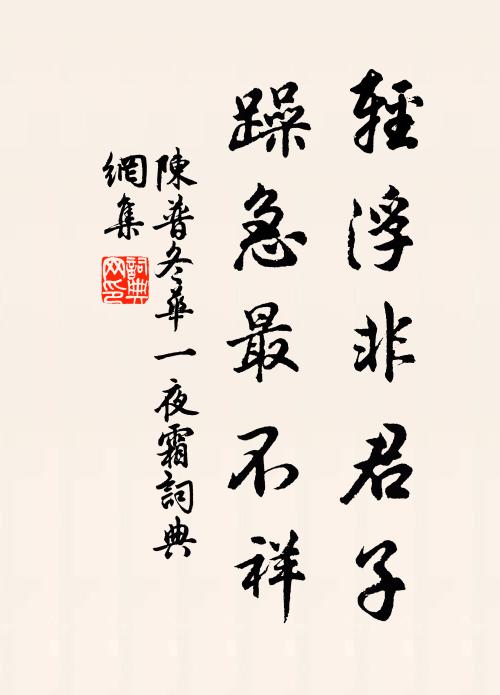 輕浮非君子
躁急最不祥
陳普冬華一夜霜詞典
網集
詞典
网印